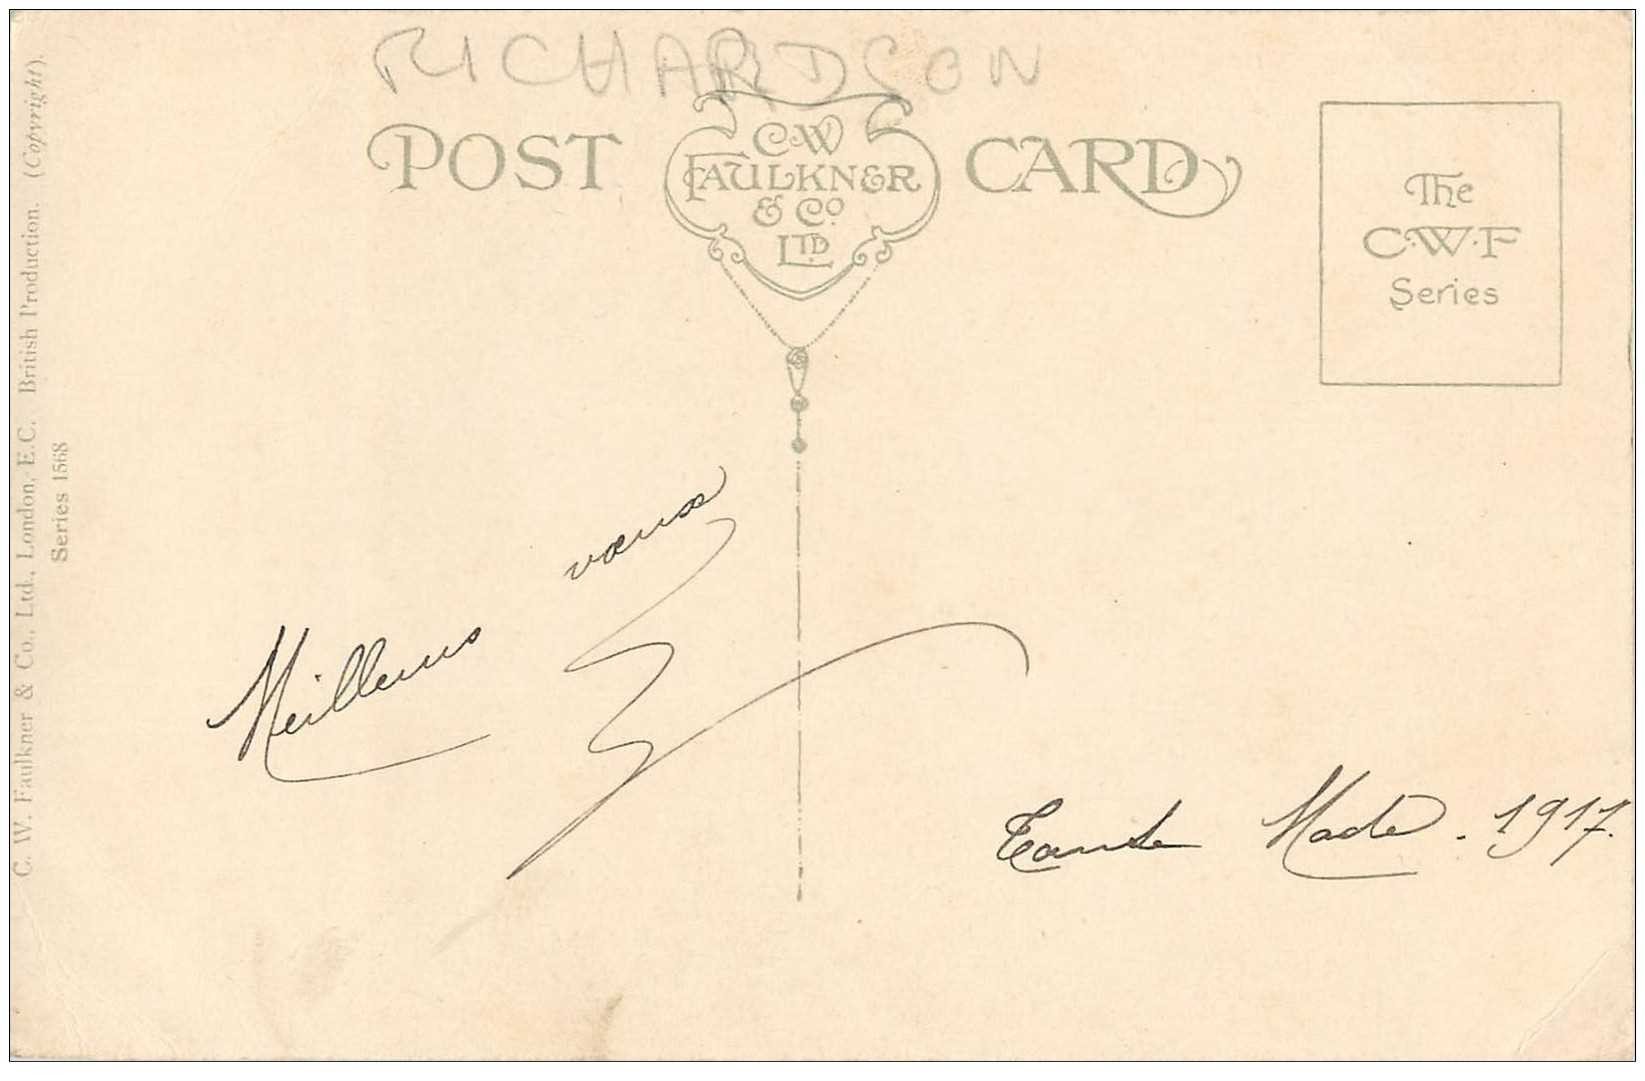 RICHARDSON
POST CARD
C.W
FAULKNER
& Co
LTD
The
C.W.F
Series
C. W. Faulkner & Co., Ltd., London, E.C. British Production. (Copyright).
Series 1568
Meilleurs vœux
Tante Made. 1917.